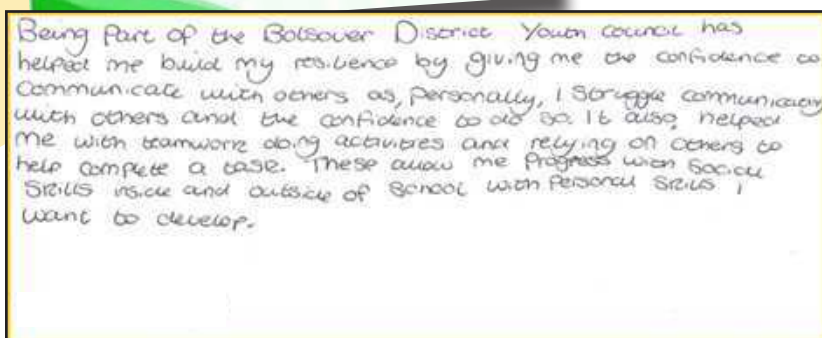 Being Part of the Bolsover District Youth council has
helped me build my resilience by giving me the confidence to
communicate with others as, personally, I struggle communicating
with others and the confidence to do so. It also, helped
me with teamwork doing activities and relying on others to
help complete a task. These allow me Progress with Social
Skills inside and outside of School with Personal Skills I
want to develop.